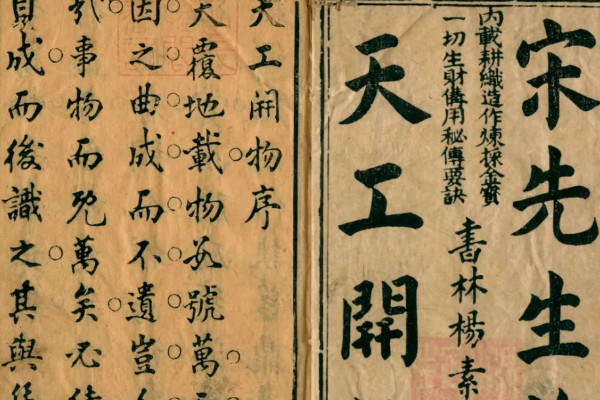 宋先生
内載耕織造作煉採金寶
一切生財備用秘傳要訣
書林楊素
天工開
天工開物序
天覆地載物數號萬
因之曲成而不遺豈
事物而既萬矣必待
目成而後識之其與